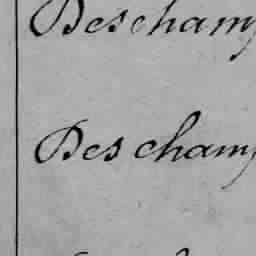 Descham
Des cham